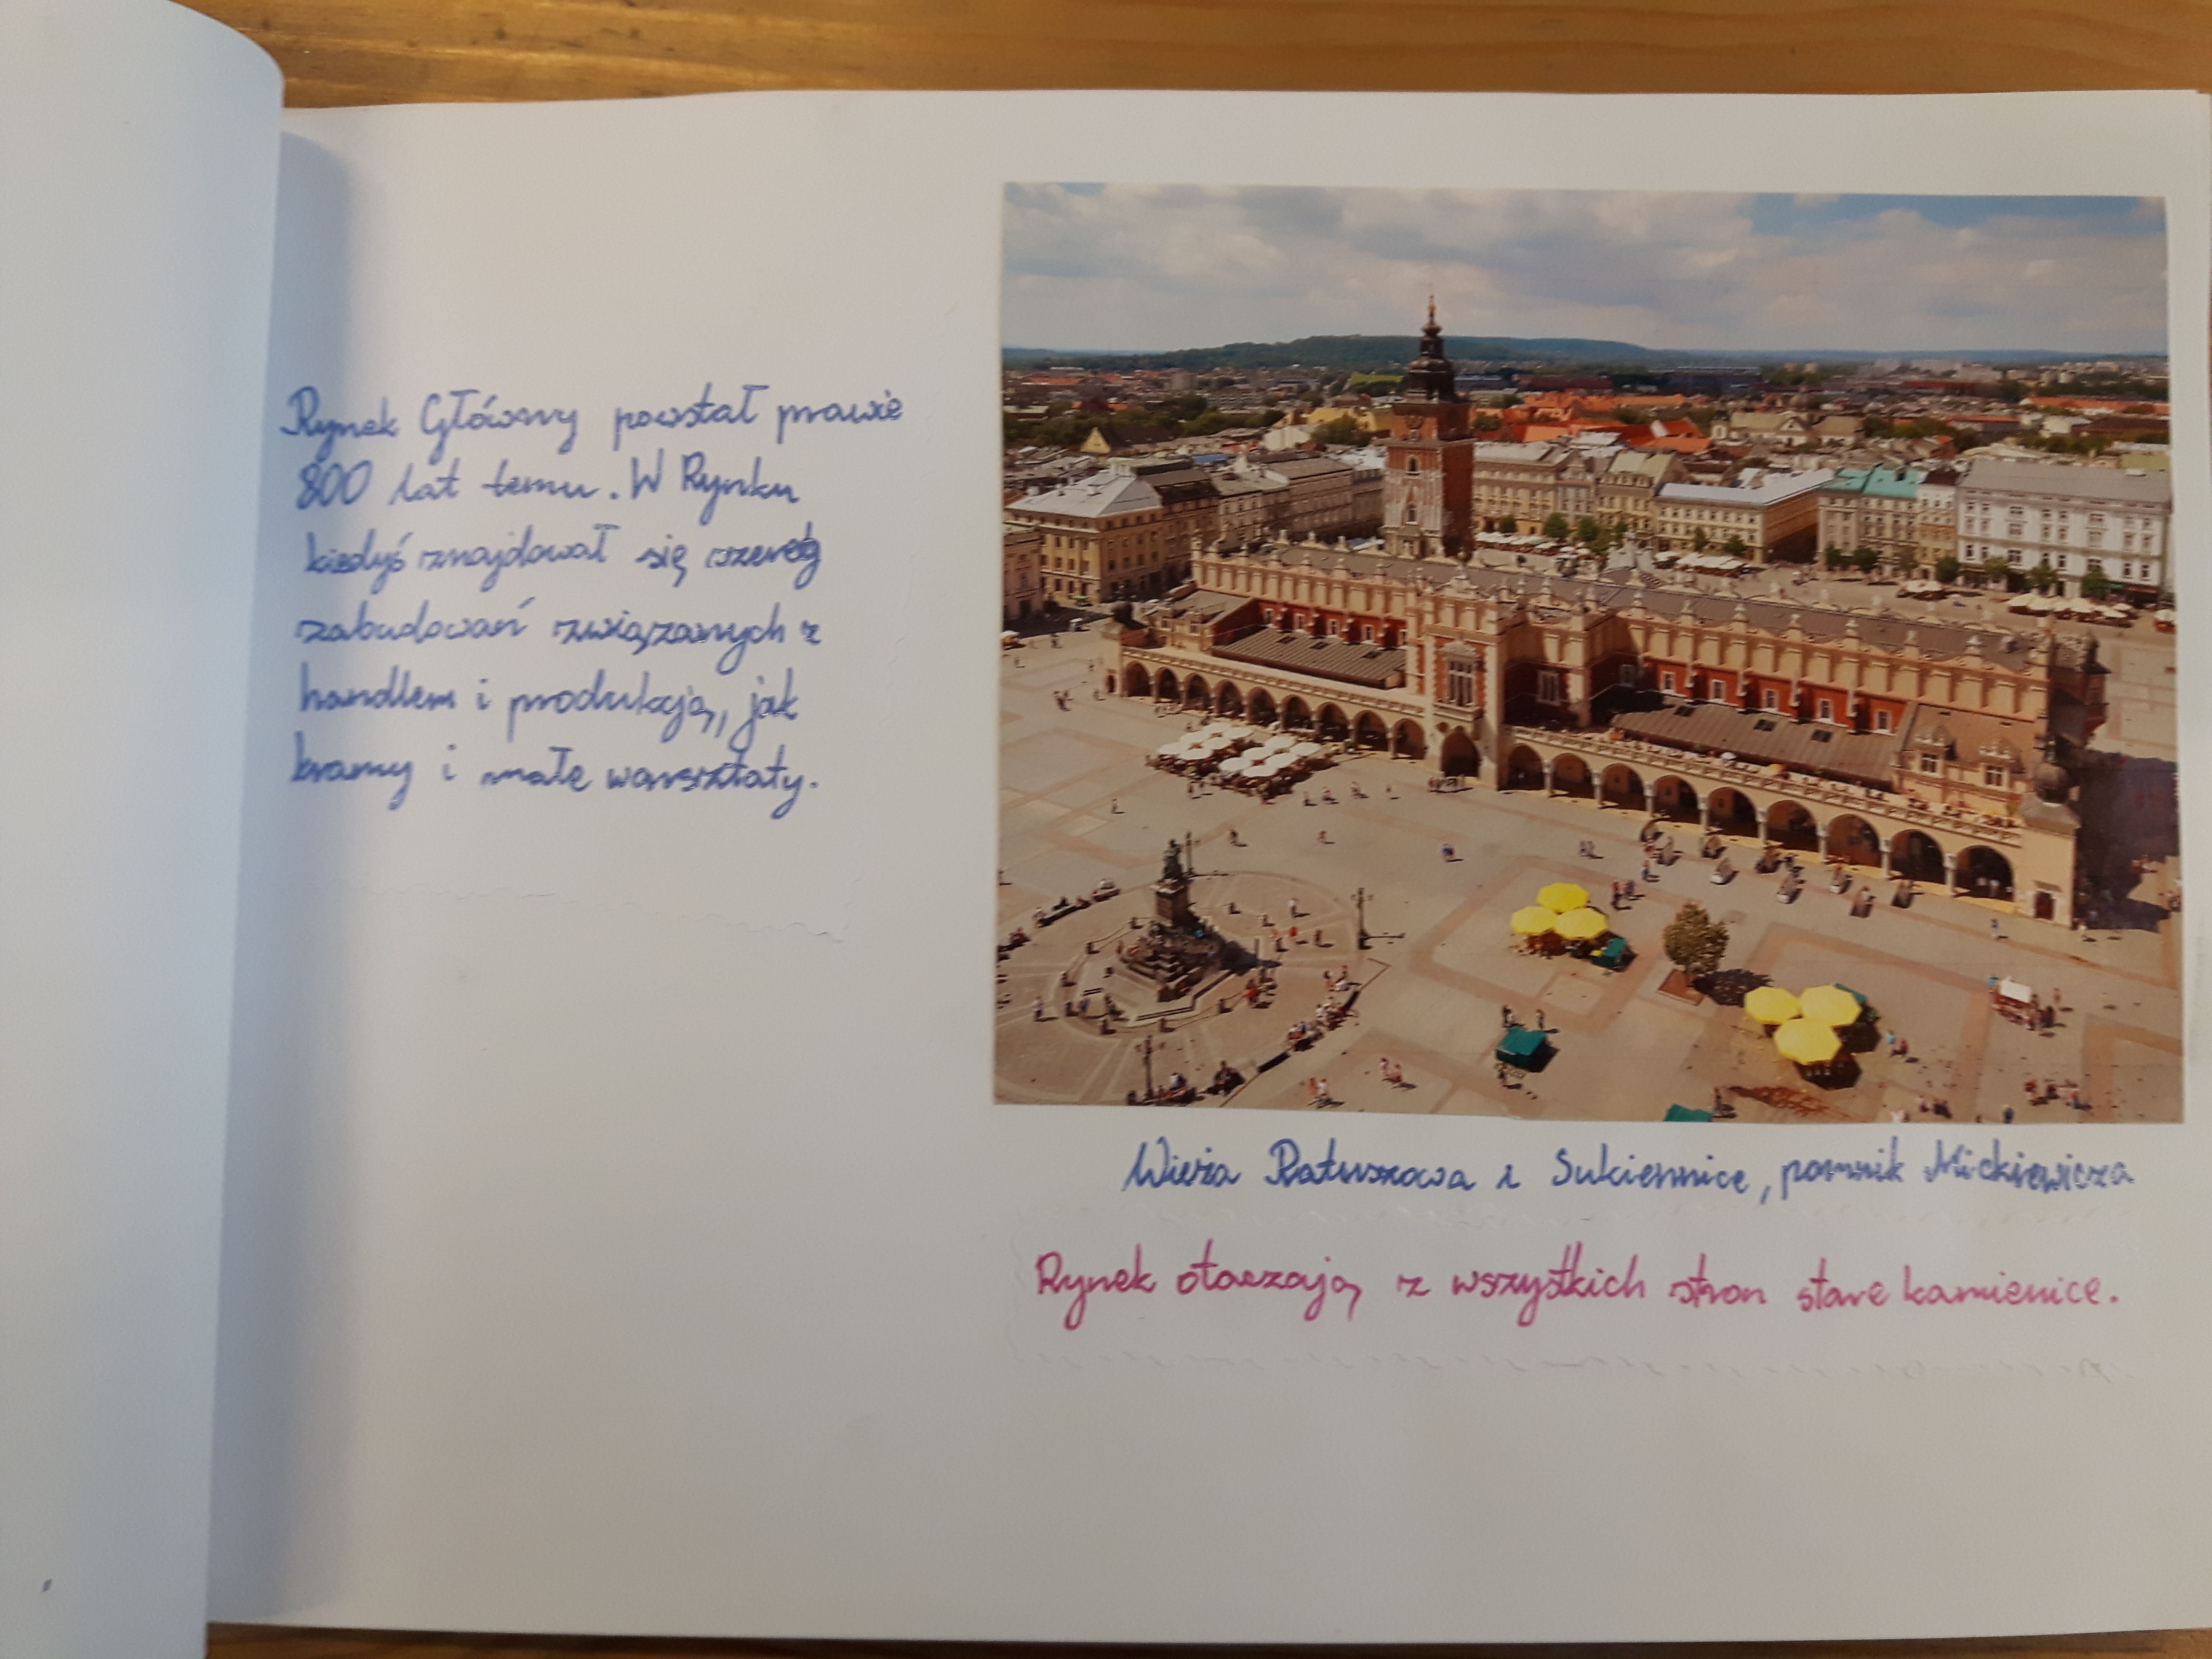 Rynek Główny powstał prawie
800 lat temu. W Rynku
kiedyś znajdował się szereg
zabudowań związanych z
handlem i produkcją, jak
kramy i małe warsztaty.
Wieża Ratuszowa i Sukiennice, pomnik Mickiewicza
Rynek otaczają z wszystkich stron stare kamienice.